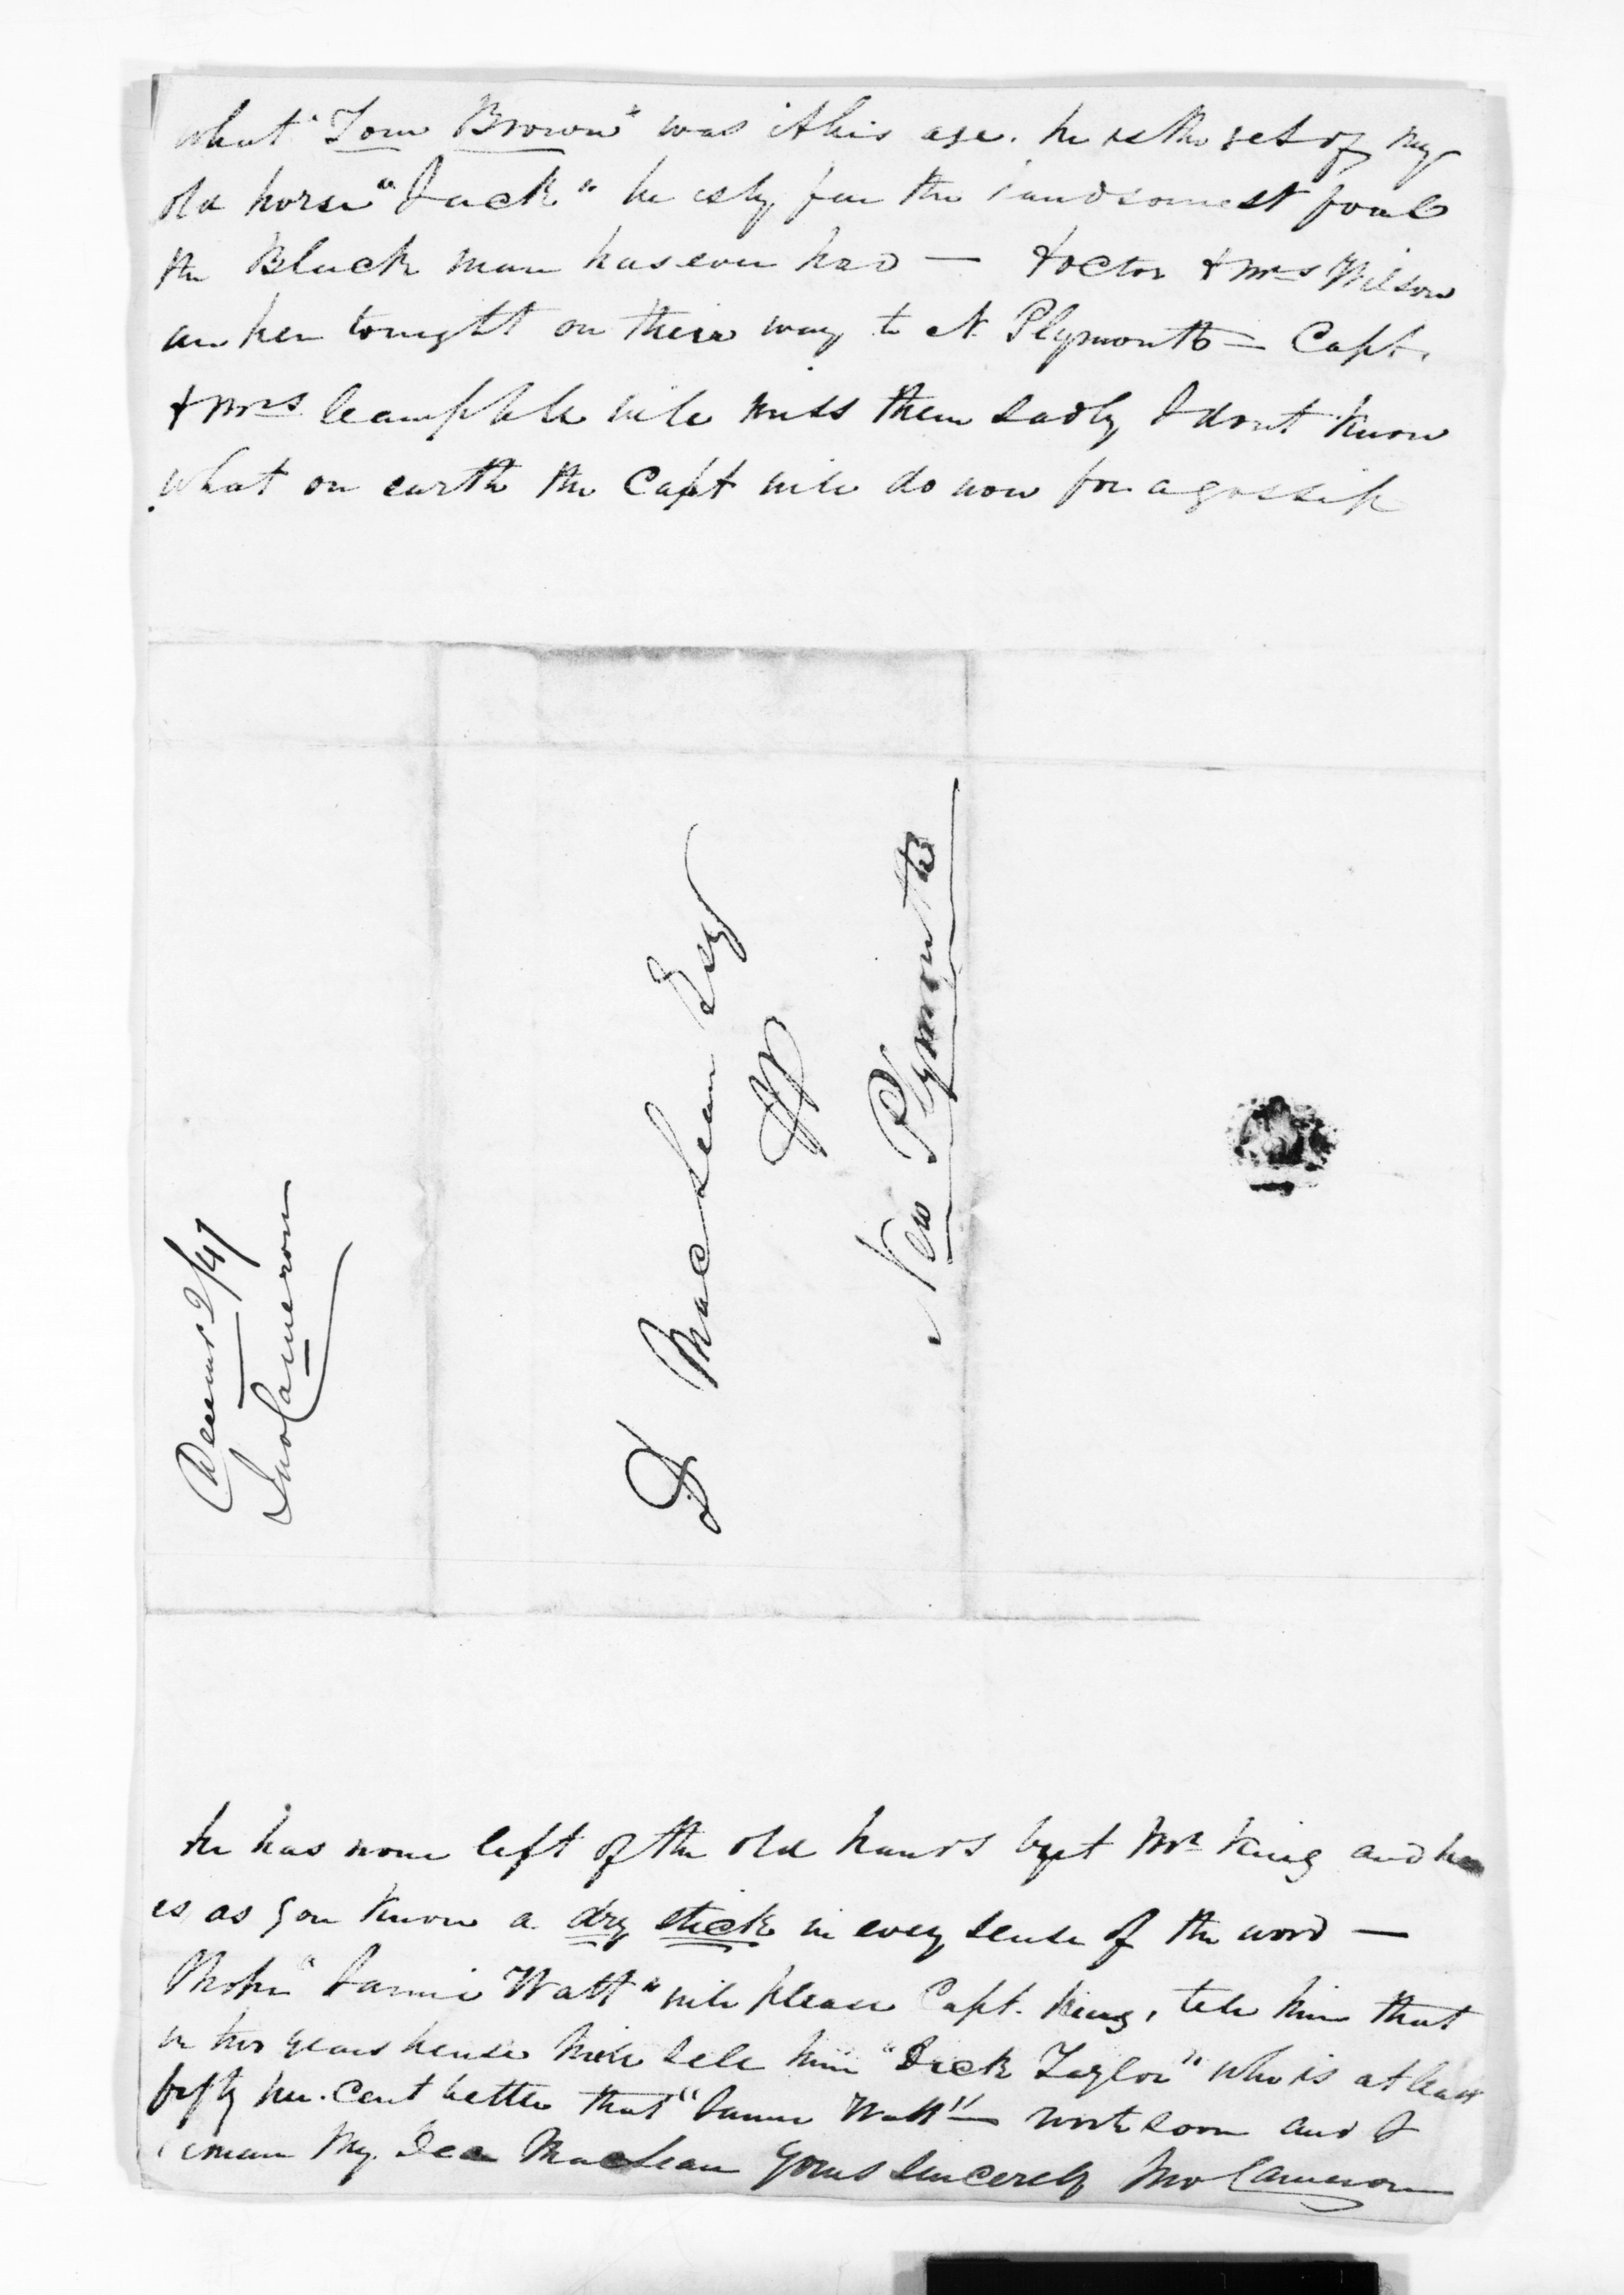 what "Tom Brown" was at his age. he is the get of my
old horse "Jack" he is by far the handsomest foal
the Black mare has ever had — Doctor & Mrs Wilson
are here tonight on their way to N. Plymouth — Capt.
& Mrs Campbell will miss them sadly, I dont know
what on earth the Capt will do now for a gossip
Decemr 2/47
Jno Cameron
D MacLean Esq
JP
New Plymouth
he has none left of the old hands but Mr King and he
is as you know a dry stick in every sense of the word —
"Jamie Watt" will please Capt. King, tell him that
in two years hence I will sell him "Dick Taylor" who is at least
fifty per. cent better that "Jamie Watt" — write soon and I
remain My Dear MacLean Yours Sincerely Jno Cameron